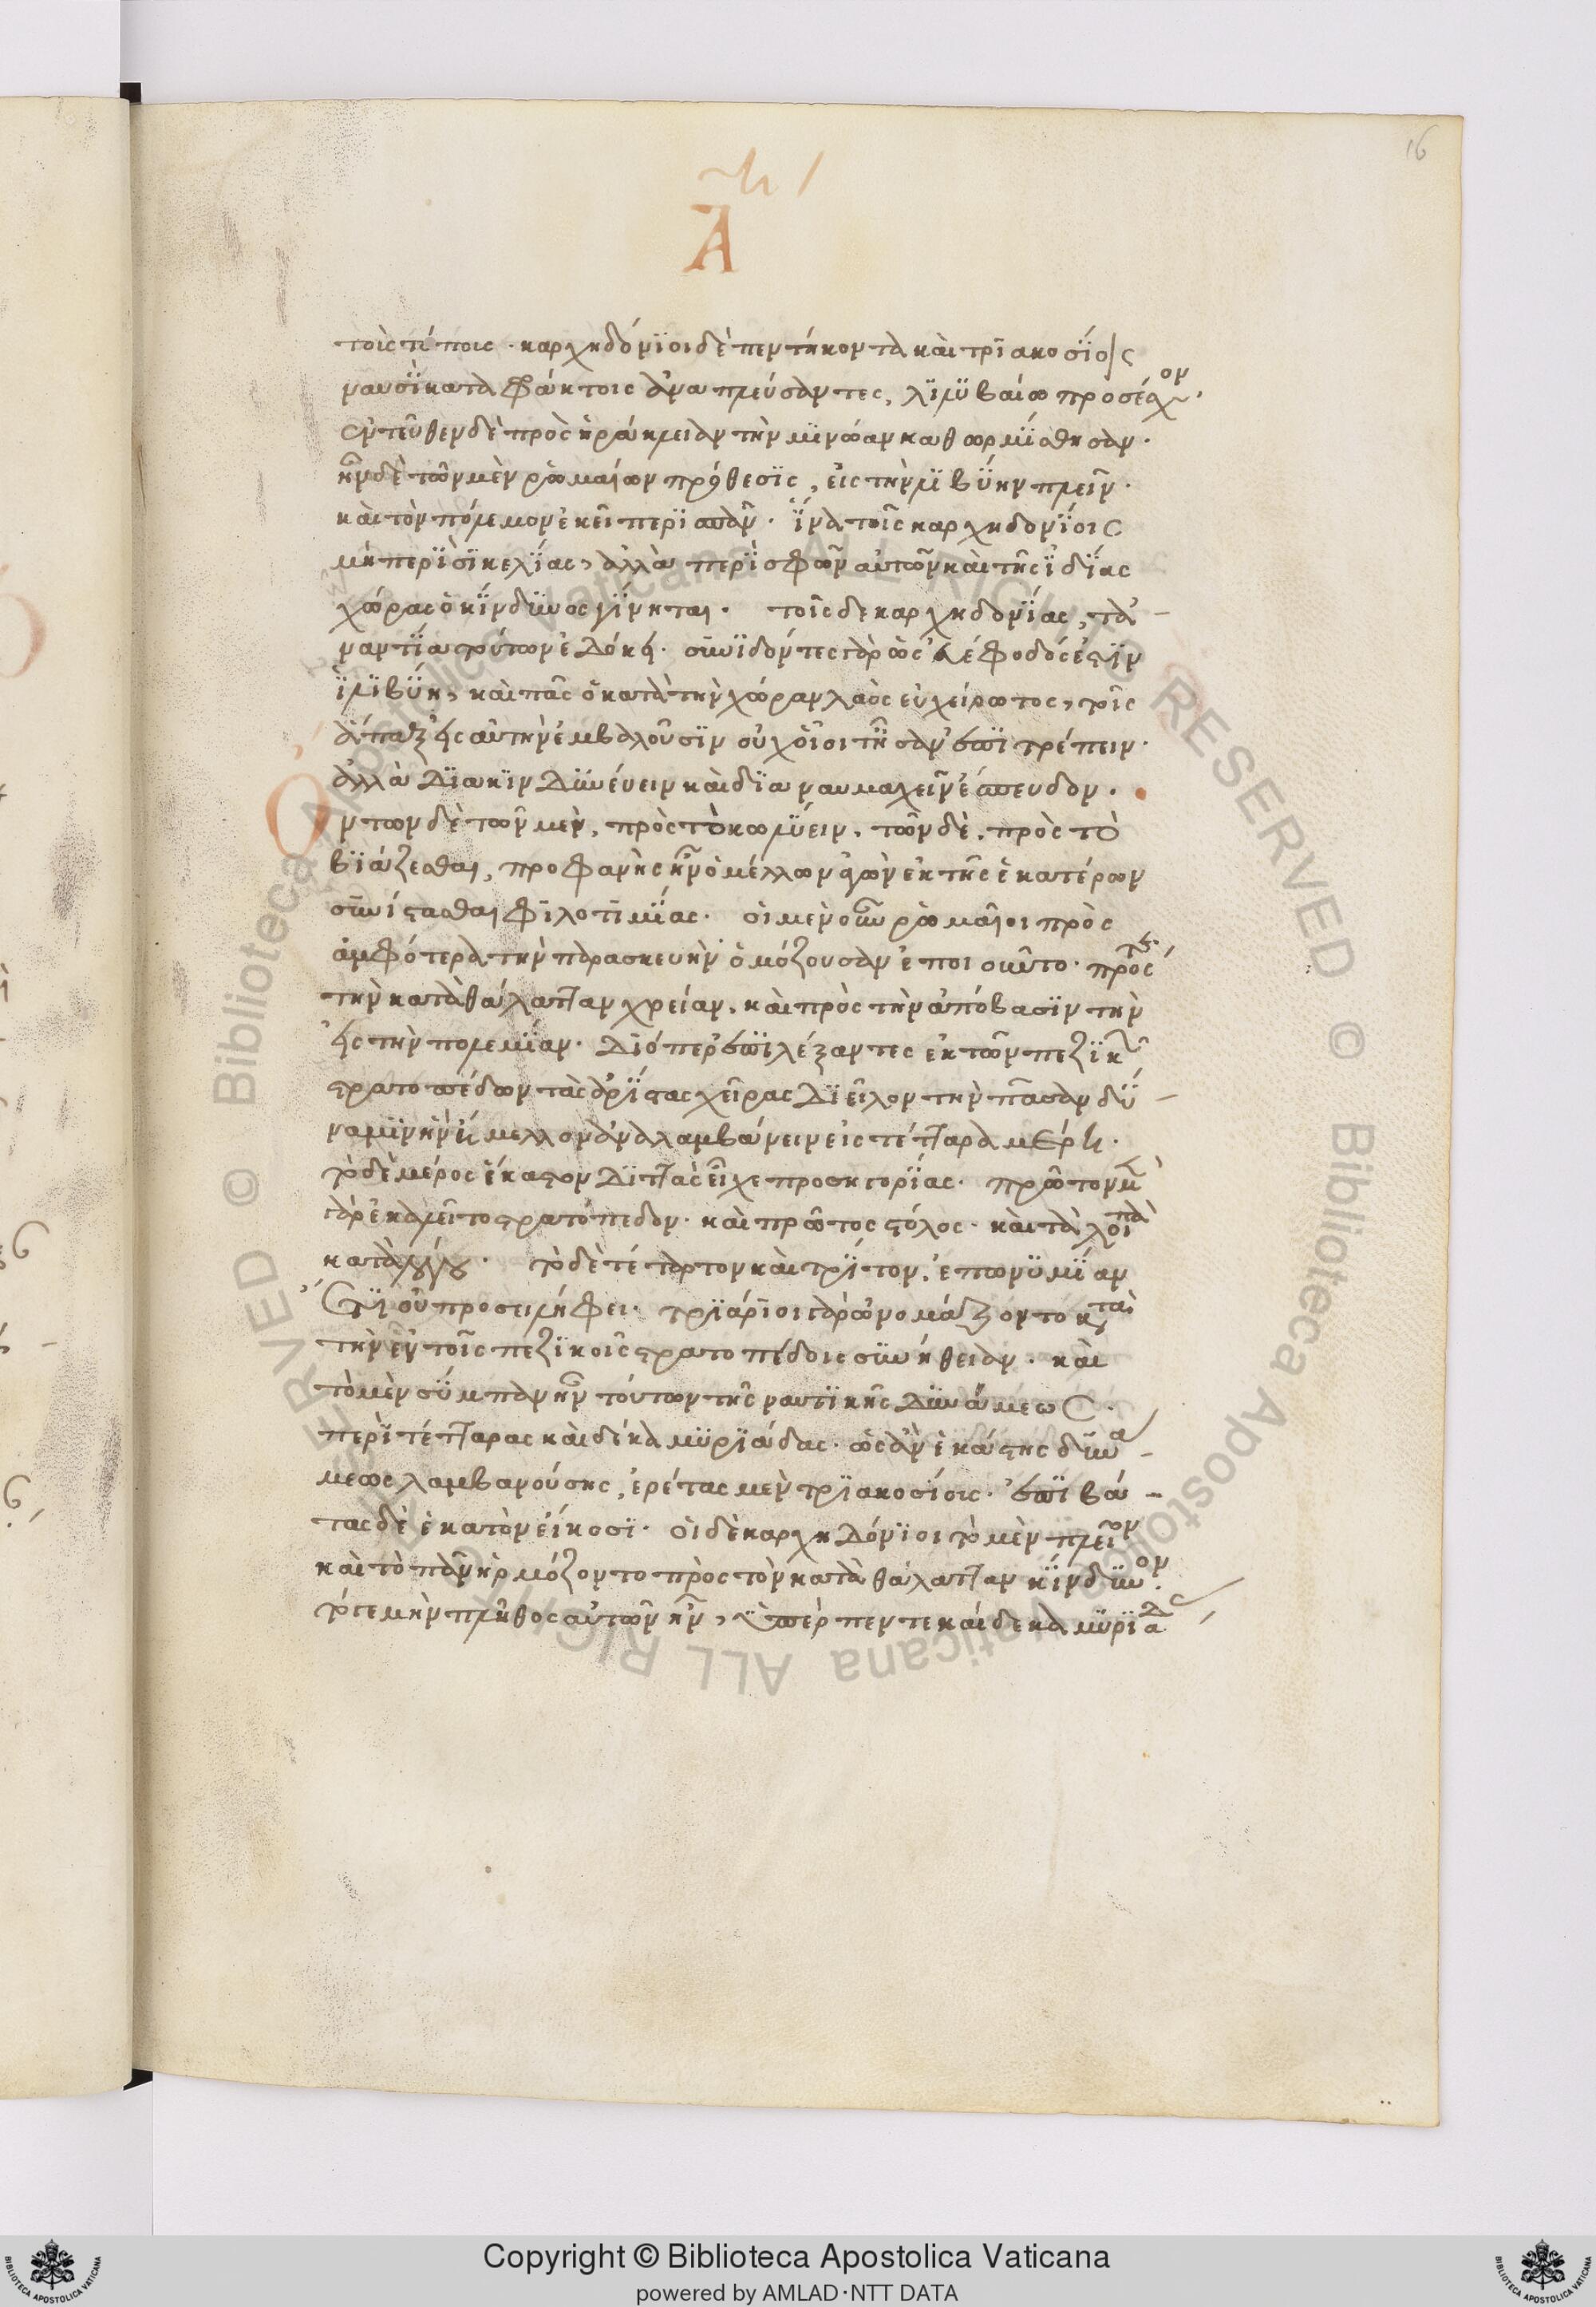 16
Α
τοῖς τόποις · καρχηδόνϊοι δὲ πεντήκοντα καὶ τρϊακοσίοις
ναυσὶ καταφράκτοις ἀναπλεύσαντες, λϊλϋβαίω προσέσχον ·
ἐντεῦθεν δὲ πρὸς ἡράκλειαν τὴν μϊνώαν καθωρμίσθησαν ·
ἦν δὲ τῶν μὲν ῥωμαίων πρόθεσϊς, εἰς τὴν λϊβύην πλεῖν ·
καὶ τὸν πόλεμον ἐκεῖ περϊσπᾶν · ἵνα τοῖς καρχηδονίοις
μὴ περὶ σϊκελίας, ἀλλὰ περὶ σφῶν αὐτῶν καὶ τῆς ἰδίας
χώρας ὁ κίνδϋνος γίνηται · τοῖς δε καρχηδονίας, τα
ναντία τούτων ἐδόκει · συνϊδόντες γὰρ ὡς εὐέφοδός ἐστϊν
ἡ λϊβύη, καὶ πᾶς ὁ κατὰ τὴν χώραν λαὸς εὐχείρωτος, τοῖς
ἅπαξ εἰς αὐτὴν ἐμβαλοῦσϊν οὐχ οἷοί τ' ἦσαν ἐπϊτρέπειν ·
ἀλλὰ δϊακινδϋνεύειν καὶ δϊαναυμαχεῖν ἔσπευδον ·
Οντων δὲ τῶν μὲν, πρὸς τὸ κωλύειν, τῶν δὲ, πρὸς τὸ
βϊάζεσθαι, προφανὴς ἦν ὁ μέλλων ἀγὼν ἐκ τῆς ἑκατέρων
συνίστασθαι φϊλοτϊμίας · οἱ μὲν οὖν ῥωμαῖοι πρὸς
ἀμφότερα τὴν παρασκευὴν ἁρμόζουσαν ἐποιοῦντο · πρός τε
τὴν κατὰ θάλατταν χρείαν, καὶ πρὸς τὴν ἀπόβασϊν τὴν
εἰς τὴν πολεμίαν · δϊόπερ ἐπϊλέξαντες ἐκ τῶν πεζϊκῶν
στρατοπέδων τὰς ἀρίστας χεῖρας δϊεῖλον τὴν πᾶσαν δύ
ναμϊν ἣν ἤμελλον ἀναλαμβάνειν εἰς τέτταρα μέρη ·
τὸ δὲ μέρος ἕκαστον δϊττὰς εἶχε προσηγορίας · πρῶτον μὲν
γὰρ ἐκαλεῖτο στρατόπεδον · καὶ πρῶτος στόλος · καὶ τὰ λοιπὰ
κατὰ λόγον · τὸ δὲ τέταρτον καὶ τρίτον, ἐπωνϋμίαν
ἔτϊ οὐ προσειλήφει · τρϊάρϊοι γὰρ ὠνομάζοντο κατὰ
τὴν ἐν τοῖς πεζϊκοῖς στρατοπέδοις συνήθειαν · καὶ
τὸ μὲν σύμπαν ἦν τούτων τῆς ναυτϊκῆς δϋνάμεως ·
περὶ τέτταρας καὶ δέκα μϋρϊάδας · ὡς ἂν ἑκάστης δϋνα
μεως λαμβανούσης, ἐρέτας μὲν τρϊακοσίοις · ἐπϊβά
τας δὲ ἑκατὸν εἴκοσϊ · οἱ δὲ καρχηδόνϊοι τὸ μὲν πλεῖον
καὶ τὸ πᾶν ἡρμόζοντο πρὸς τὸν κατὰ θάλατταν κίνδϋνον ·
τό τε μὴν πλῆθος αὐτῶν ἦν, ὑπὲρ πεντεκαίδεκα μϋρϊάδας